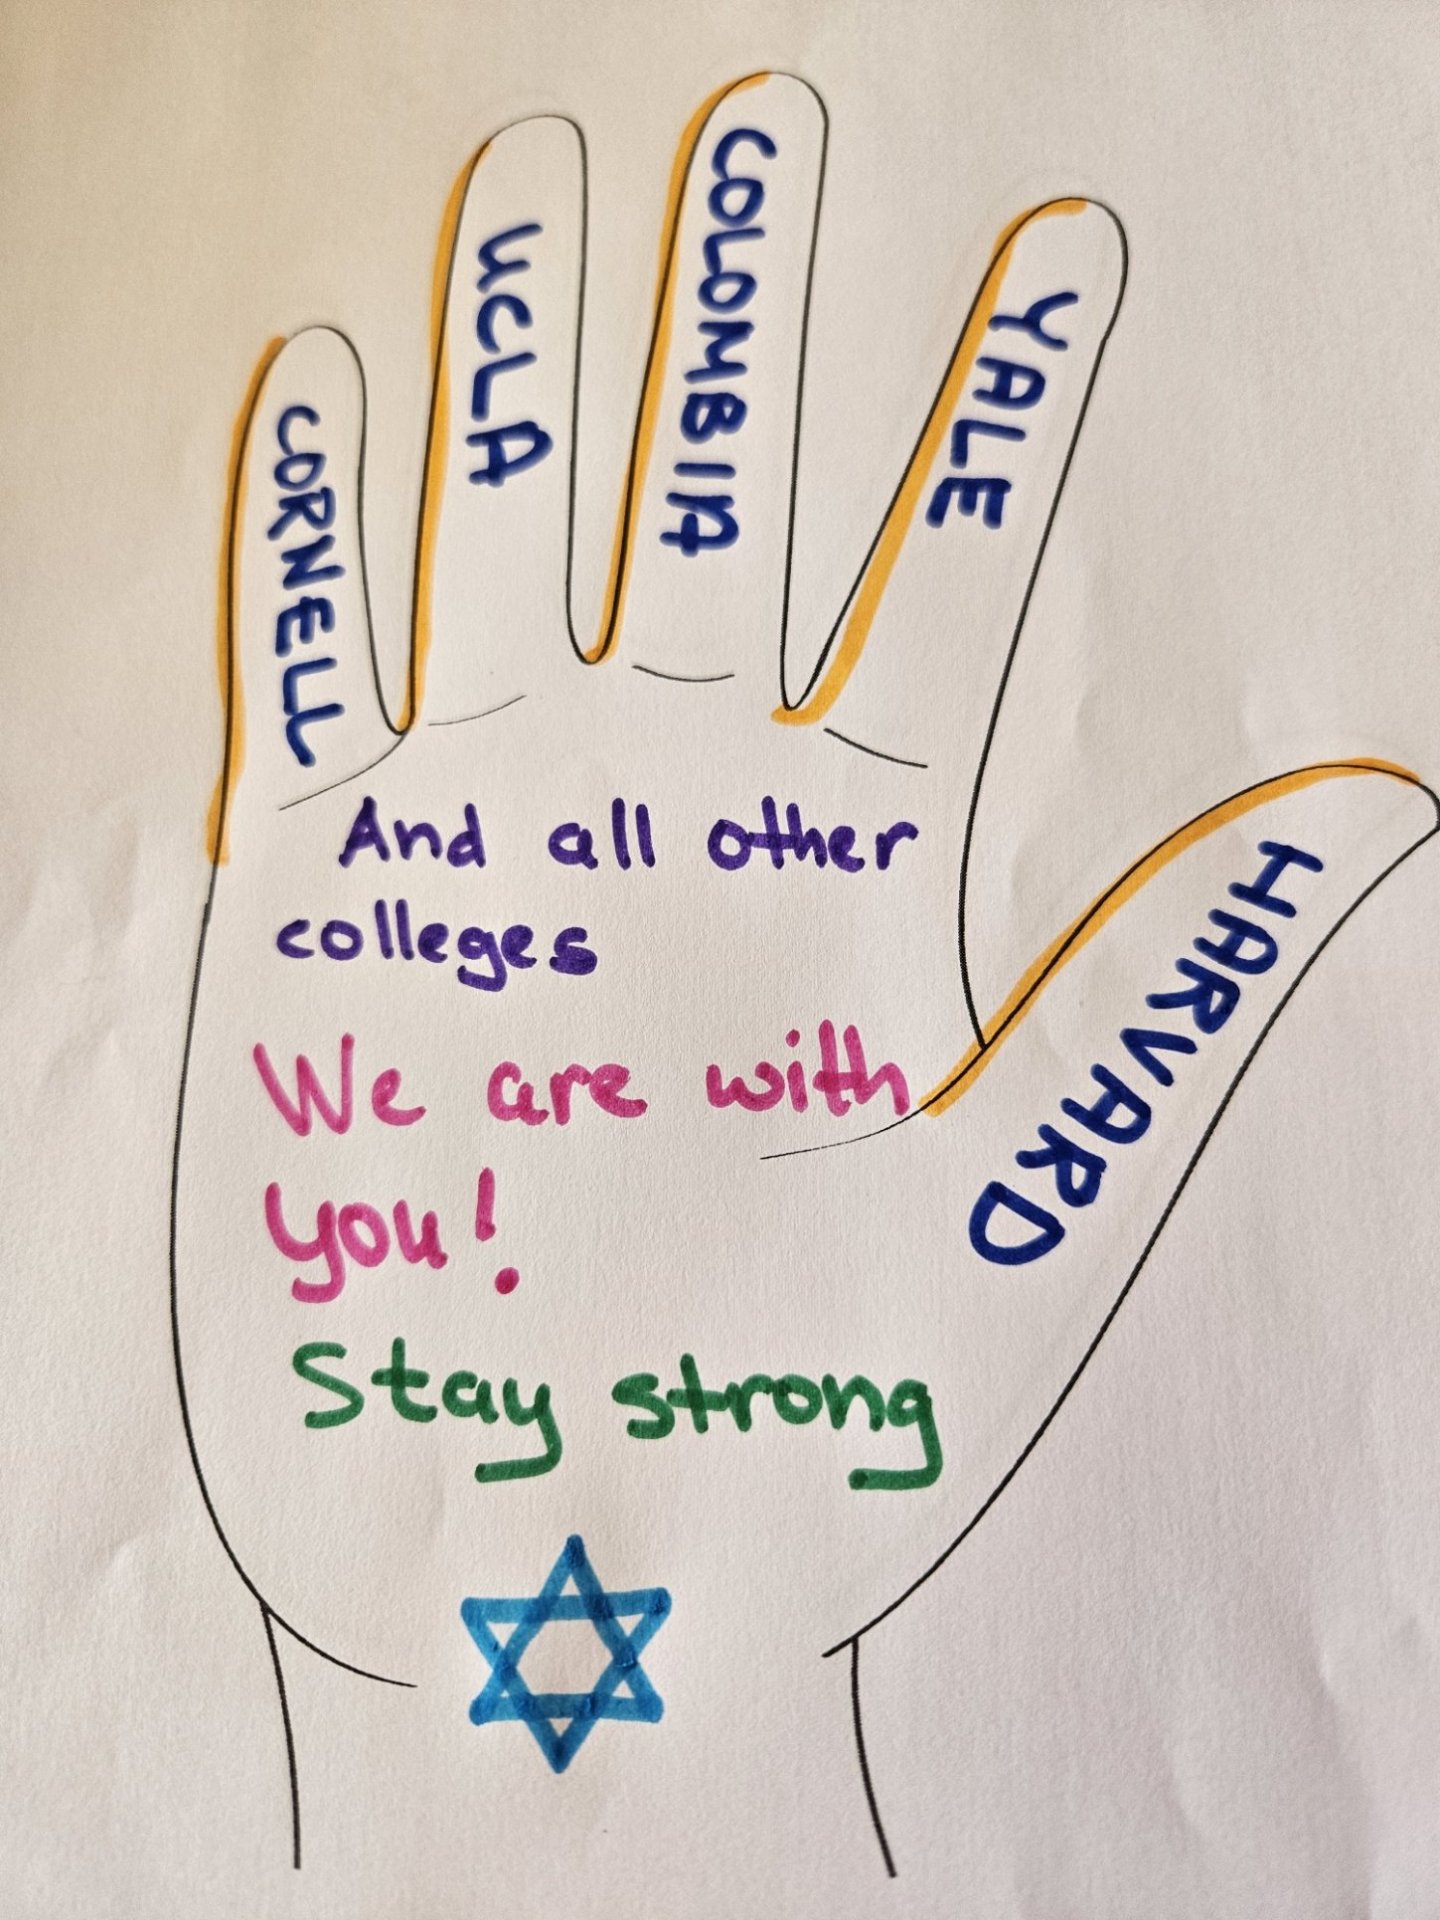 CORNELL
UCLA
COLOMBIA
YALE
HARVARD
And all other
colleges
We are with
you!
Stay strong